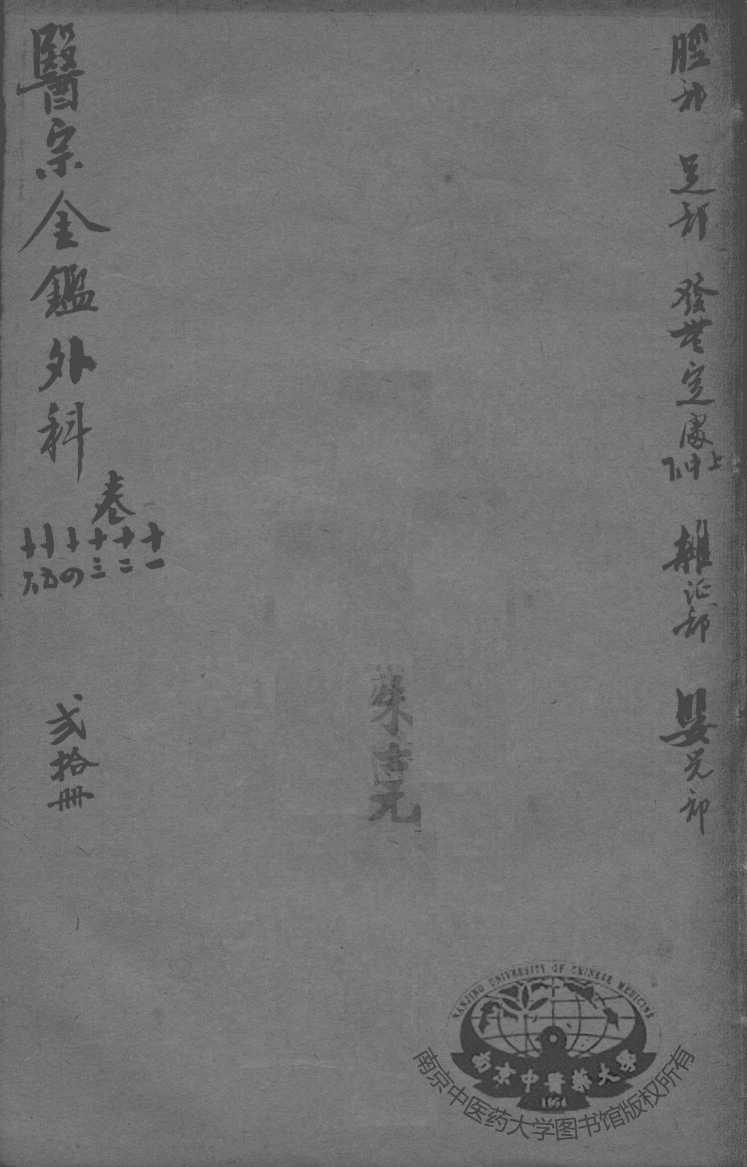 脛部 足部 發無定處上中下 雜症部 嬰兒部
朱吉元
醫宗金鑑外科
卷十一十二十三十四十五十六
貳拾冊
NANJING UNIVERSITY OF CHINESE MEDICINE
南京中醫藥大學
1954
南京中医药大学图书馆版权所有